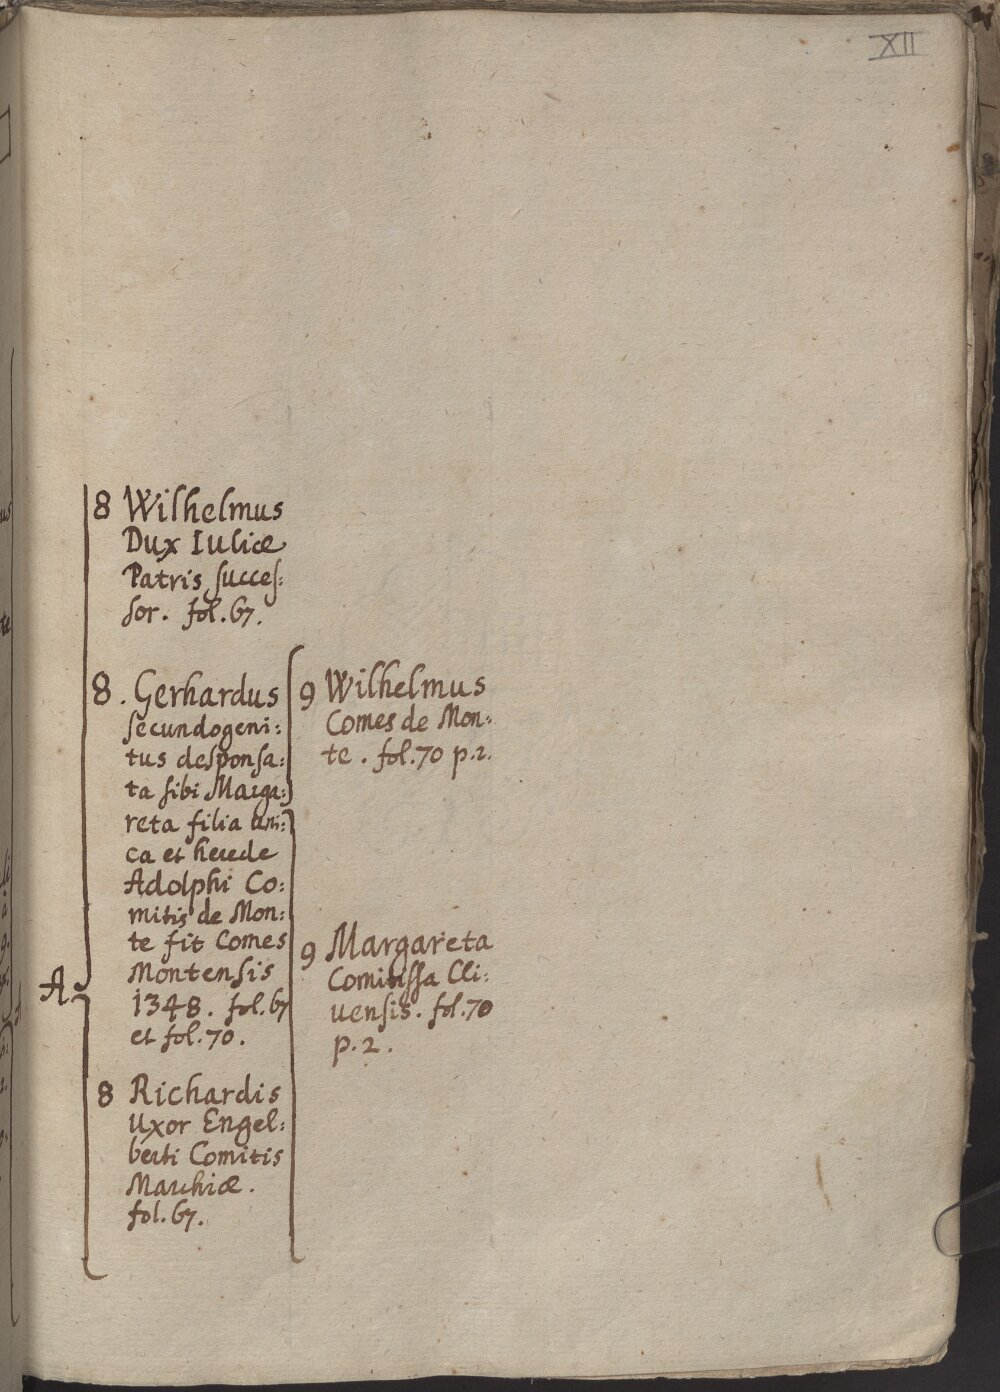 XII
8 Wilhelmus
Dux Iuliæ
Patris succes:
sor. fol. 67.
8. Gerhardus
secundogeni:
tus desponsa:
ta sibi Marga:
reta filia uni:
ca et herede
Adolphi Co:
mitis de Mon:
te fit Comes
Montensis
1348. fol. 67
et fol. 70.
A
8 Richardis
Uxor Engel:
berti Comitis
Marchiæ.
fol. 67.
9 Wilhelmus
Comes de Mon:
te. fol. 70 p. 2.
9 Margareta
Comitissa Cli:
uensis. fol. 70
p. 2.